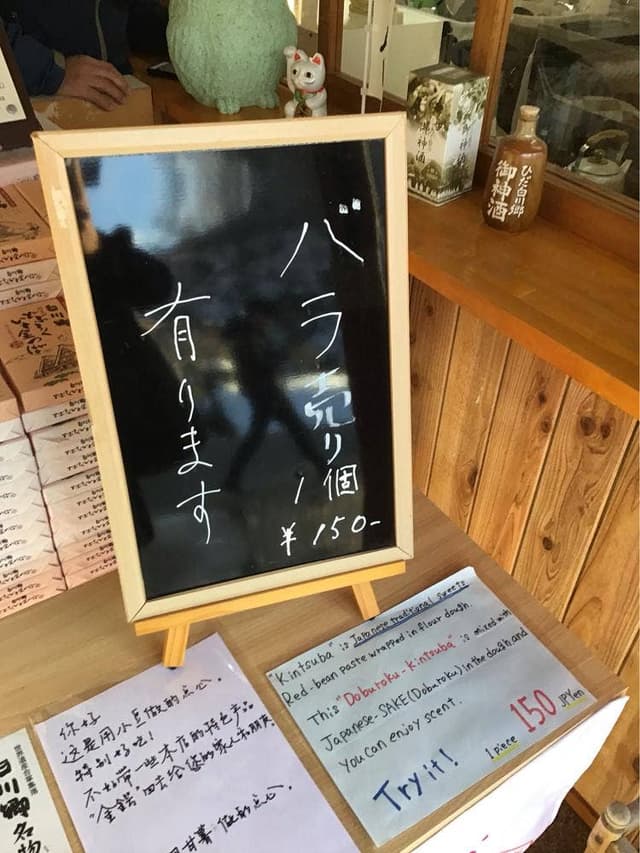 バラ売り
1個
¥150-
有ります
御神酒
ひだ白川郷
御神酒
"Kintsuba" is Japanese traditional sweets
Red-bean paste wrapped in flour dough.
This "Doburoku-kintsuba" is mixed with
Japanese-SAKE(Doburoku) in the dough, and
You can enjoy scent.
Try it!
1 piece 150 JPYen
你好
这是用小豆做的点心。
特别好吃!
不如带一些本店的特色产品
"金锷"回去给您的家人和朋友。
甘薯"做的点心。
白川郷名物